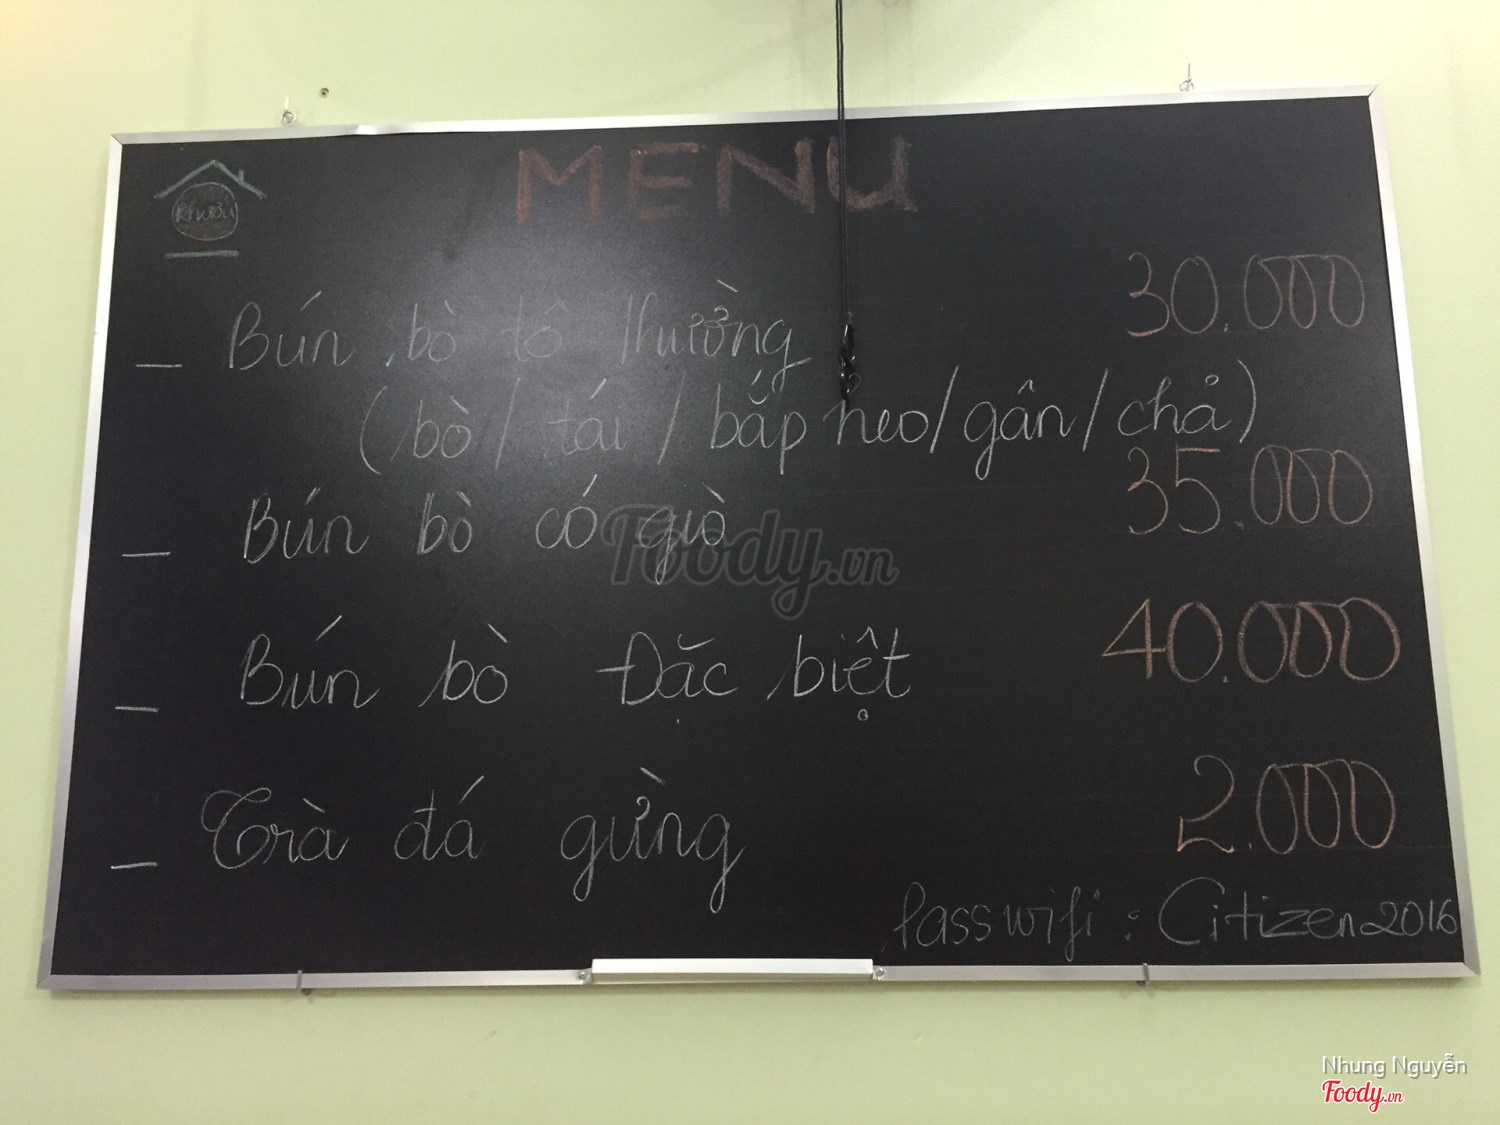 MENU
_ Bún bò tô thường 30.000
(bò / tái / bắp heo / gân / chả)
_ Bún bò có giò 35.000
_ Bún bò Đặc biệt 40.000
_ Trà đá gừng 2.000
Pass wifi : Citizen2016
Foody.vn
Nhung Nguyễn
Foody.vn